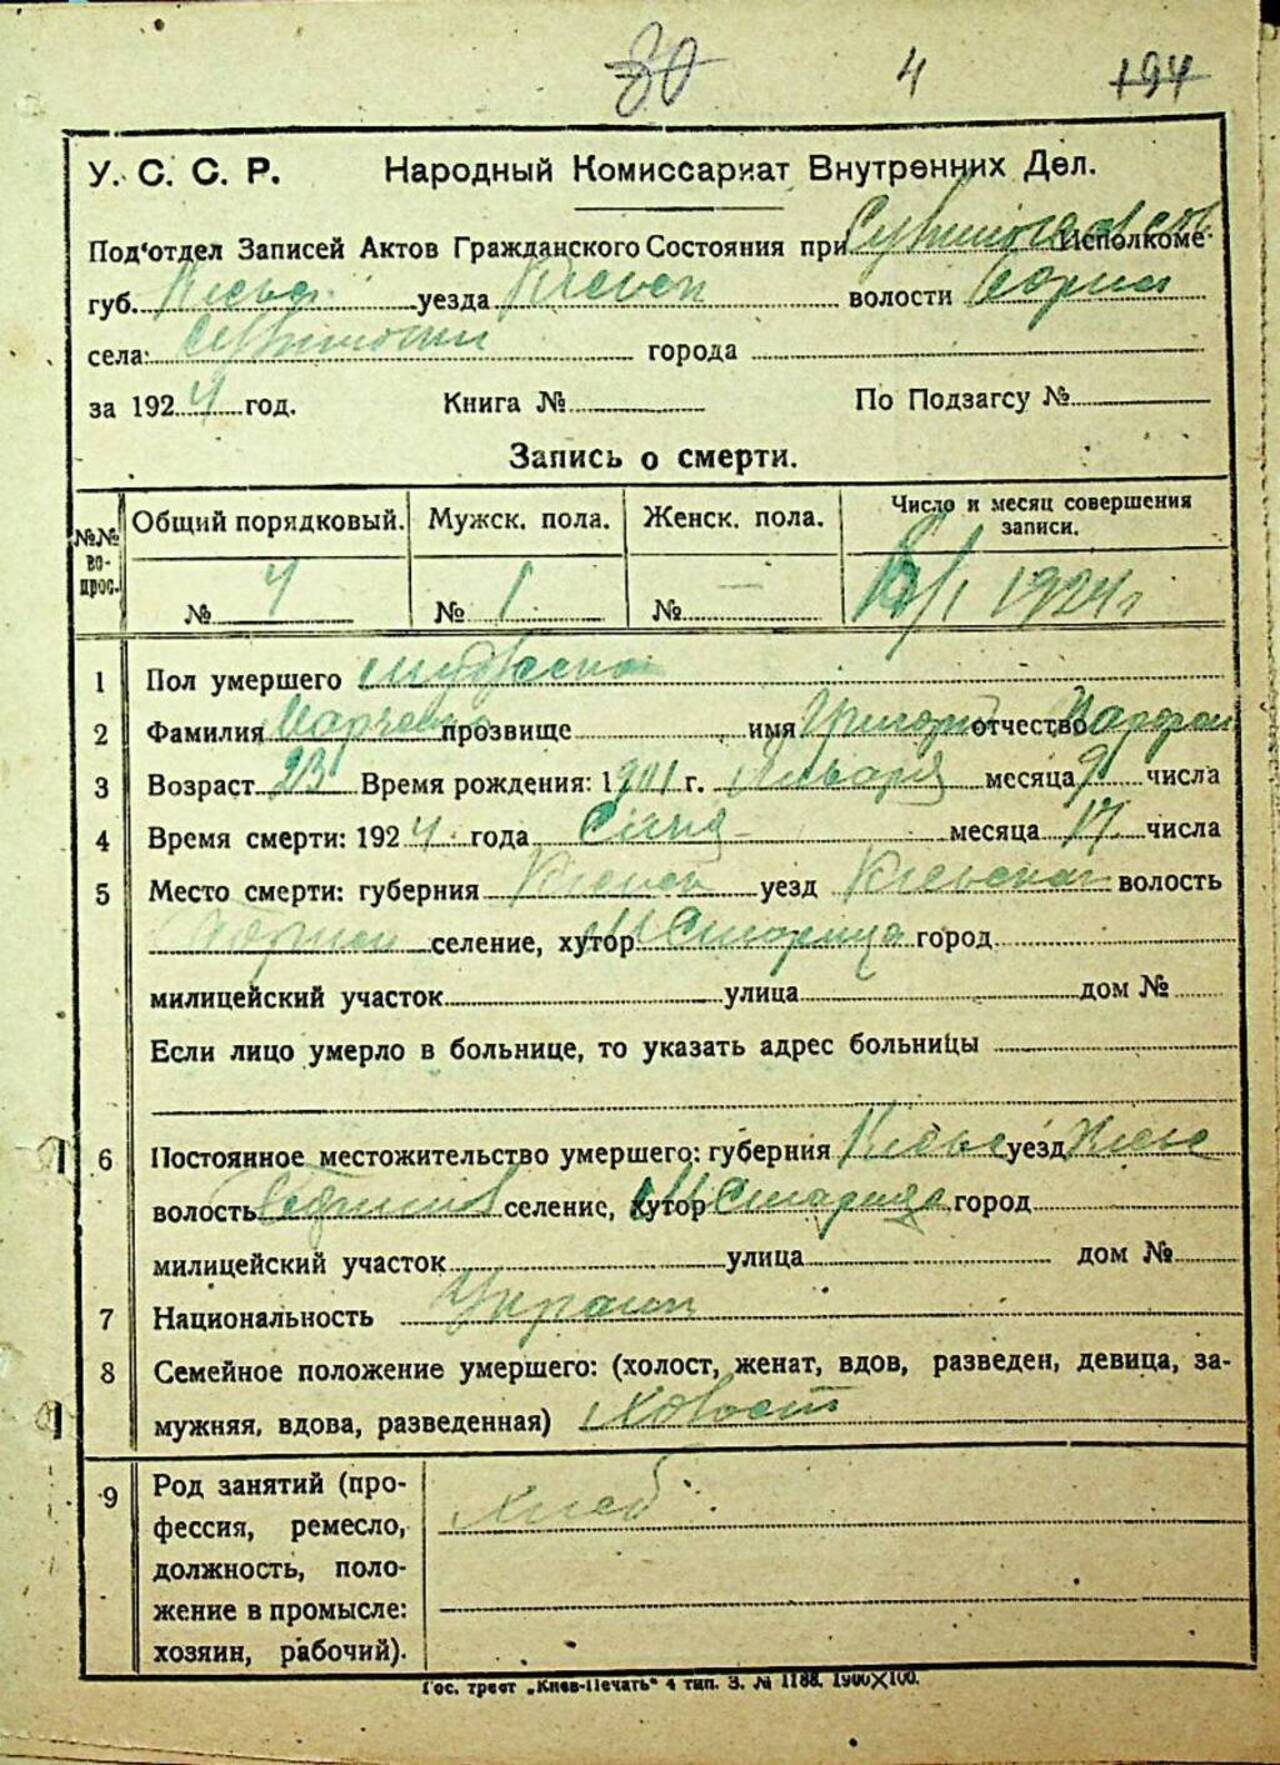 80 4 194
У. С. С. Р. Народный Комиссариат Внутренних Дел.
Под'отдел Записей Актов Гражданского Состояния при Исполкоме
губ. Киевс уезда Киевск волости Борисп
села: города
за 1924 год. Книга № По Подзагсу №
Запись о смерти.
№№ вопрос. Общий порядковый. Мужск. пола. Женск. пола. Число и месяц совершения записи.
№ 4 № 1 № — /1 1924 г
1 Пол умершего мужеска
2 Фамилия Марченко прозвище имя Григорий отчество
3 Возраст 23 Время рождения: 1901 г. Января месяца 9 числа
4 Время смерти: 1924 года Січня месяца 17 числа
5 Место смерти: губерния Киевск уезд Киевская волость
селение, хутор М Старица город
милицейский участок улица дом №
Если лицо умерло в больнице, то указать адрес больницы
6 Постоянное местожительство умершего: губерния Киевс уезд Киев
волость селение, хутор М Старица город
милицейский участок улица дом №
7 Национальность Украин
8 Семейное положение умершего: (холост, женат, вдов, разведен, девица, за-
мужняя, вдова, разведенная) Холост
9 Род занятий (про- Хлеб
фессия, ремесло,
должность, поло-
жение в промысле:
хозяин, рабочий).
Гос. трест „Киев-Печать“ 4 тип. З. № 1188. 1900×100.